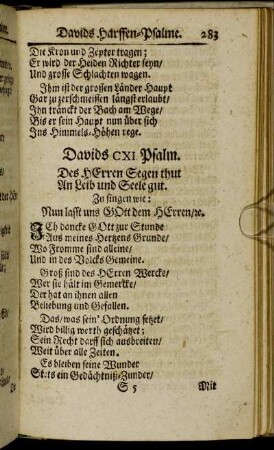 Davids Harffen-Psalme. 283
Die Kron und Zepter tragen;
Er wird der Heiden Richter seyn/
Und grosse Schlachten wagen.
Ihm ist der grossen Länder Haupt
Gar zu zerschmeissen längst erlaubt/
Ihn tränckt der Bach am Wege/
Biß er sein Haupt nun über sich
Ins Himmels-Höhen rege.
Davids CXI. Psalm.
Des HErren Segen thut
An Leib und Seele gut.
Zu singen wie:
Nun lasst uns GOtt dem HErren/ ꝛc.
ICh dancke GOtt zur Stunde
Aus meines Hertzens Grunde/
Wo Fromme sind alleine/
Und in des Volcks Gemeine.
Groß sind des HErren Wercke/
Wer sie hält im Gemercke/
Der hat an ihnen allen
Beliebung und Gefallen.
Das/ was sein' Ordnung setzet/
Wird billig werth geschätzet;
Sein Recht darff sich ausbreiten/
Weit über alle Zeiten.
Es bleiben seine Wunder
Stets ein Gedächtniß-Zunder/
S 5 Mit